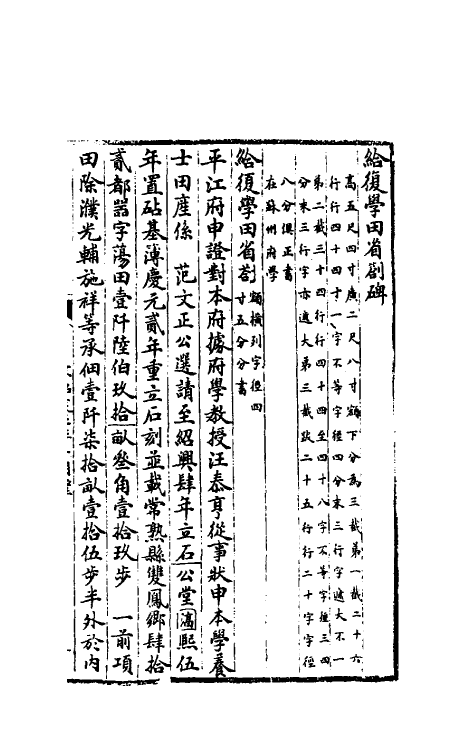 給復學田省劄碑
高五尺四寸廣二尺八寸額下分為三截第一截二十六
行行四十四寸一字不等字徑四分末三行字遞大不一
第二截三十四行行四十四至四十八字不等字徑三四
分末三行字亦遞大第三截跋二十五行行二十字字徑
八分俱正書
在蘇州府學
給復學田省劄額橫列字徑四
寸五分分書
平江府申證對本府據府學教授汪泰亨從事狀申本學養
士田產係 范文正公選請至紹興肆年立石公堂淳熙伍
年置砧基薄慶元貳年重立石刻並載常熟縣雙鳳鄉肆拾
貳都器字蕩田壹阡陸伯玖拾畝叁角壹拾玖步 一前項
田除濮光輔施祥等承佃壹阡柒拾畝壹拾伍步半外於內